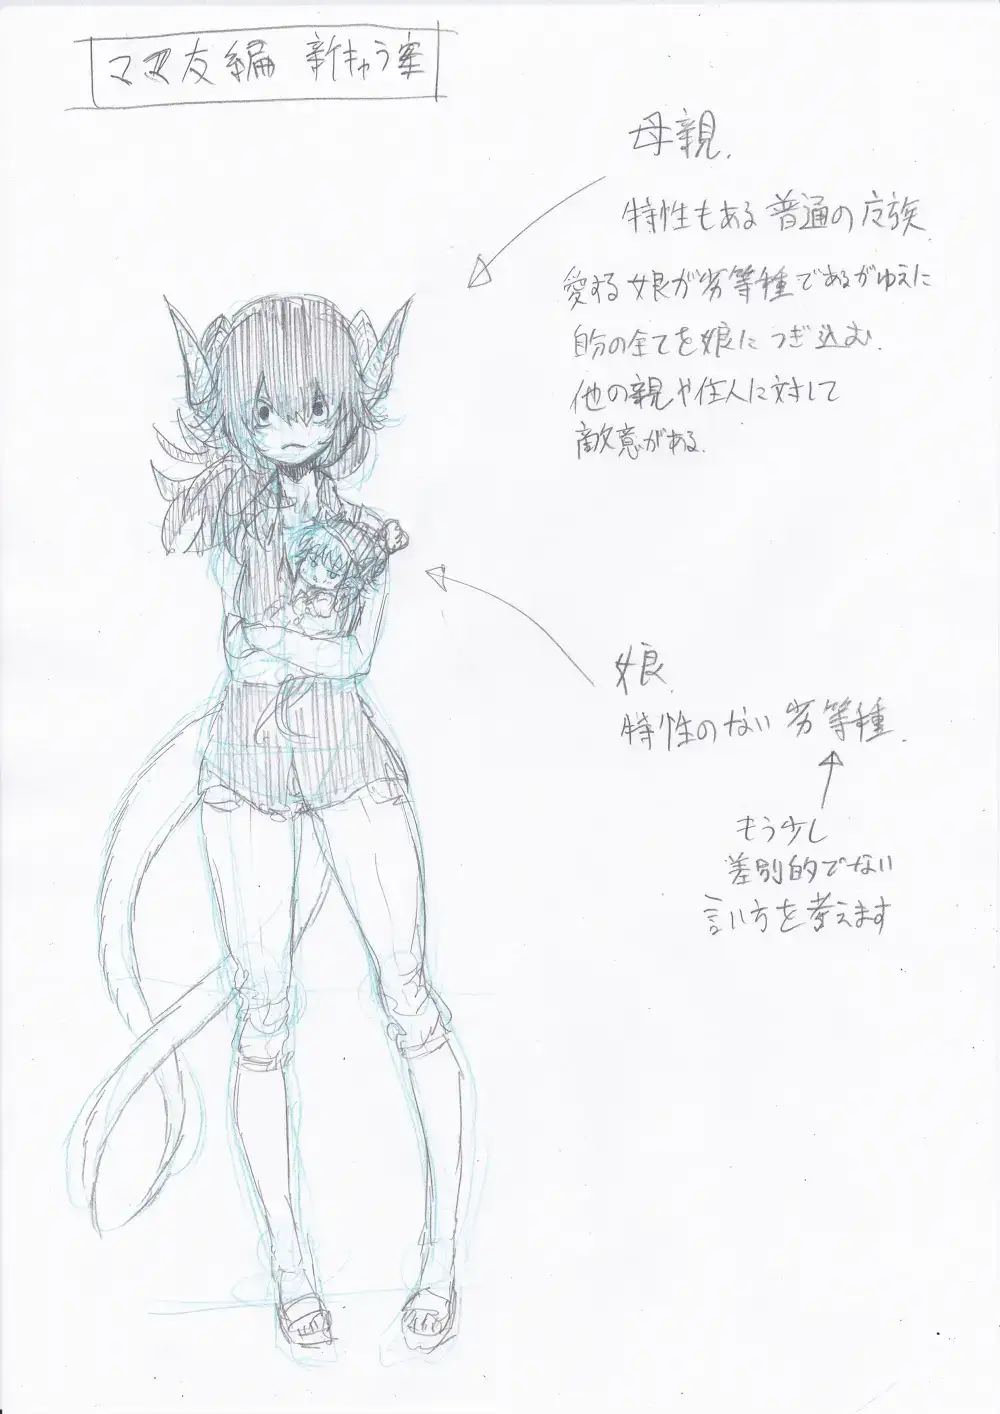 ママ友編 新キャラ案
母親.
特性もある普通の皮族.
愛する娘が劣等種であるがゆえに
自分の全てを娘につぎ込む.
他の親や住人に対して
敵意がある.
娘.
特性のない劣等種.
もう少し
差別的でない
言い方を考えます